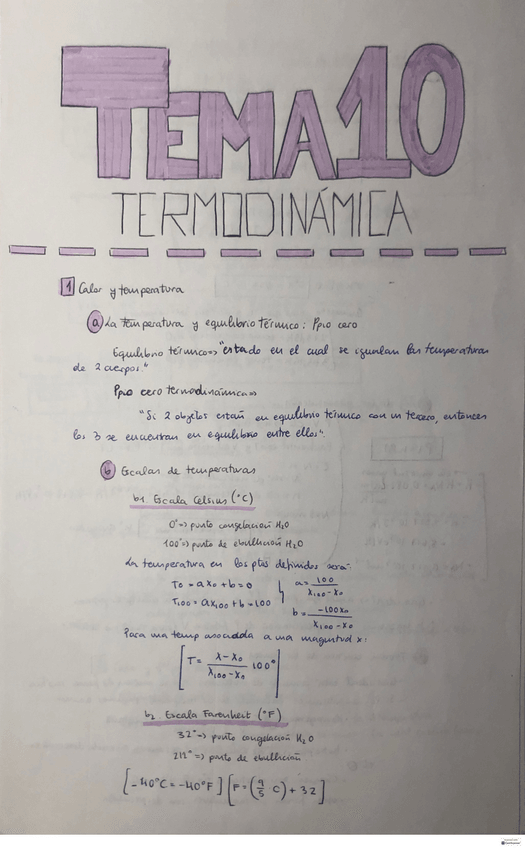 TEMA10
TERMODINÁMICA
1 Calor y temperatura
a La temperatura y equilibrio térmico: Ppio cero
Equilibrio térmico=> "estado en el cual se igualan las temperaturas
de 2 cuerpos."
Ppio cero termodinámica=>
"Si 2 objetos están en equilibrio térmico con un tercero, entonces
los 3 se encuentran en equilibrio entre ellos".
b Escalas de temperaturas
b1. Escala Celsius (°C)
0°=> punto congelación H2O
100°=> punto de ebullición H2O
La temperatura en los ptos definidos será:
T0 = a x0 + b = 0
a = 100 / x100 - x0
T100 = a x100 + b = 100
b = -100x0 / x100 - x0
Para una temp asociada a una magnitud x:
[T = x - x0 / x100 - x0 100°]
b2. Escala Farenheit (°F)
32°=> punto congelación H2O
212°=> punto de ebullición
[-40°C = -40°F] [F = (9/5 C) + 32]